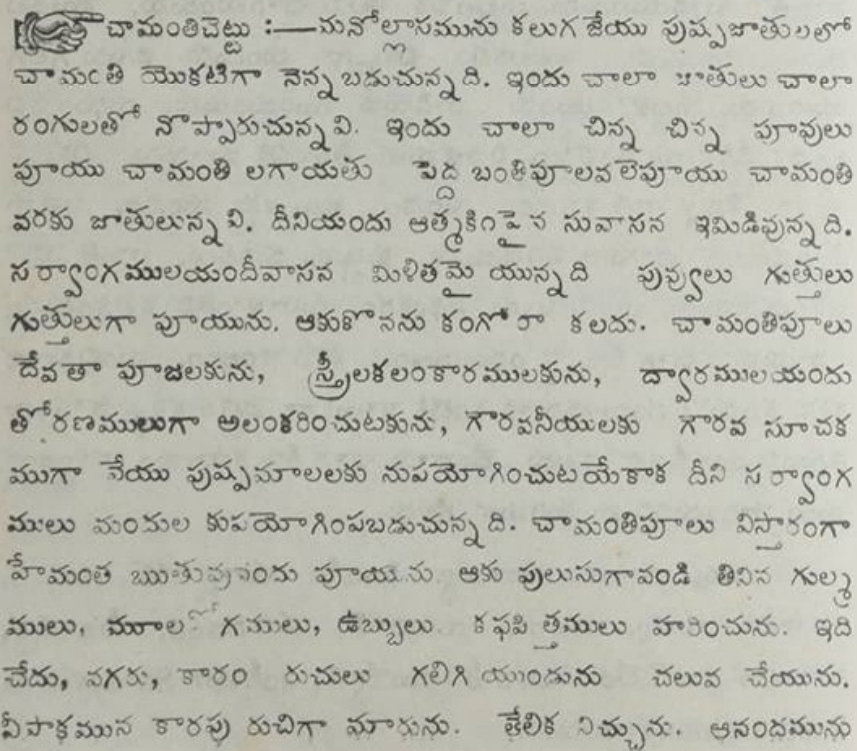 చామంతిచెట్టు :—మనోల్లాసమును కలుగ జేయు పుష్పజాతులలో
చామంతి యొకటిగా నెన్న బడుచున్నది. ఇందు చాలా జాతులు చాలా
రంగులతో నొప్పారుచున్నవి. ఇందు చాలా చిన్న చిన్న పూవులు
పూయు చామంతి లగాయతు పెద్ద బంతిపూలవలెపూయు చామంతి
వరకు జాతులున్నవి. దీనియందు ఆత్మకింపైన సువాసన ఇమిడివున్నది.
సర్వాంగములయందీవాసన మిళితమై యున్నది పువ్వులు గుత్తులు
గుత్తులుగా పూయును. ఆకుకొనను కంగోరా కలదు. చామంతిపూలు
దేవతా పూజలకును, స్త్రీలకలంకారములకును, ద్వారములయందు
తోరణములుగా అలంకరించుటకును, గౌరవనీయులకు గౌరవ సూచక
ముగా వేయు పుష్పమాలలకు నుపయోగించుటయేకాక దీని సర్వాంగ
ములు మందుల కుపయోగింపబడుచున్నది. చామంతిపూలు విస్తారంగా
హేమంత ఋతువునందు పూయును. ఆకు పులుసుగావండి తినిన గుల్మ
ములు, మూల గములు, ఉబ్బులు కఫపిత్తములు హరించును. ఇది
చేదు, వగరు, కారం రుచులు గలిగియుండును చలువ చేయును.
విపాకమున కారపు రుచిగా మారును. తేలిక నిచ్చును. ఆనందమును